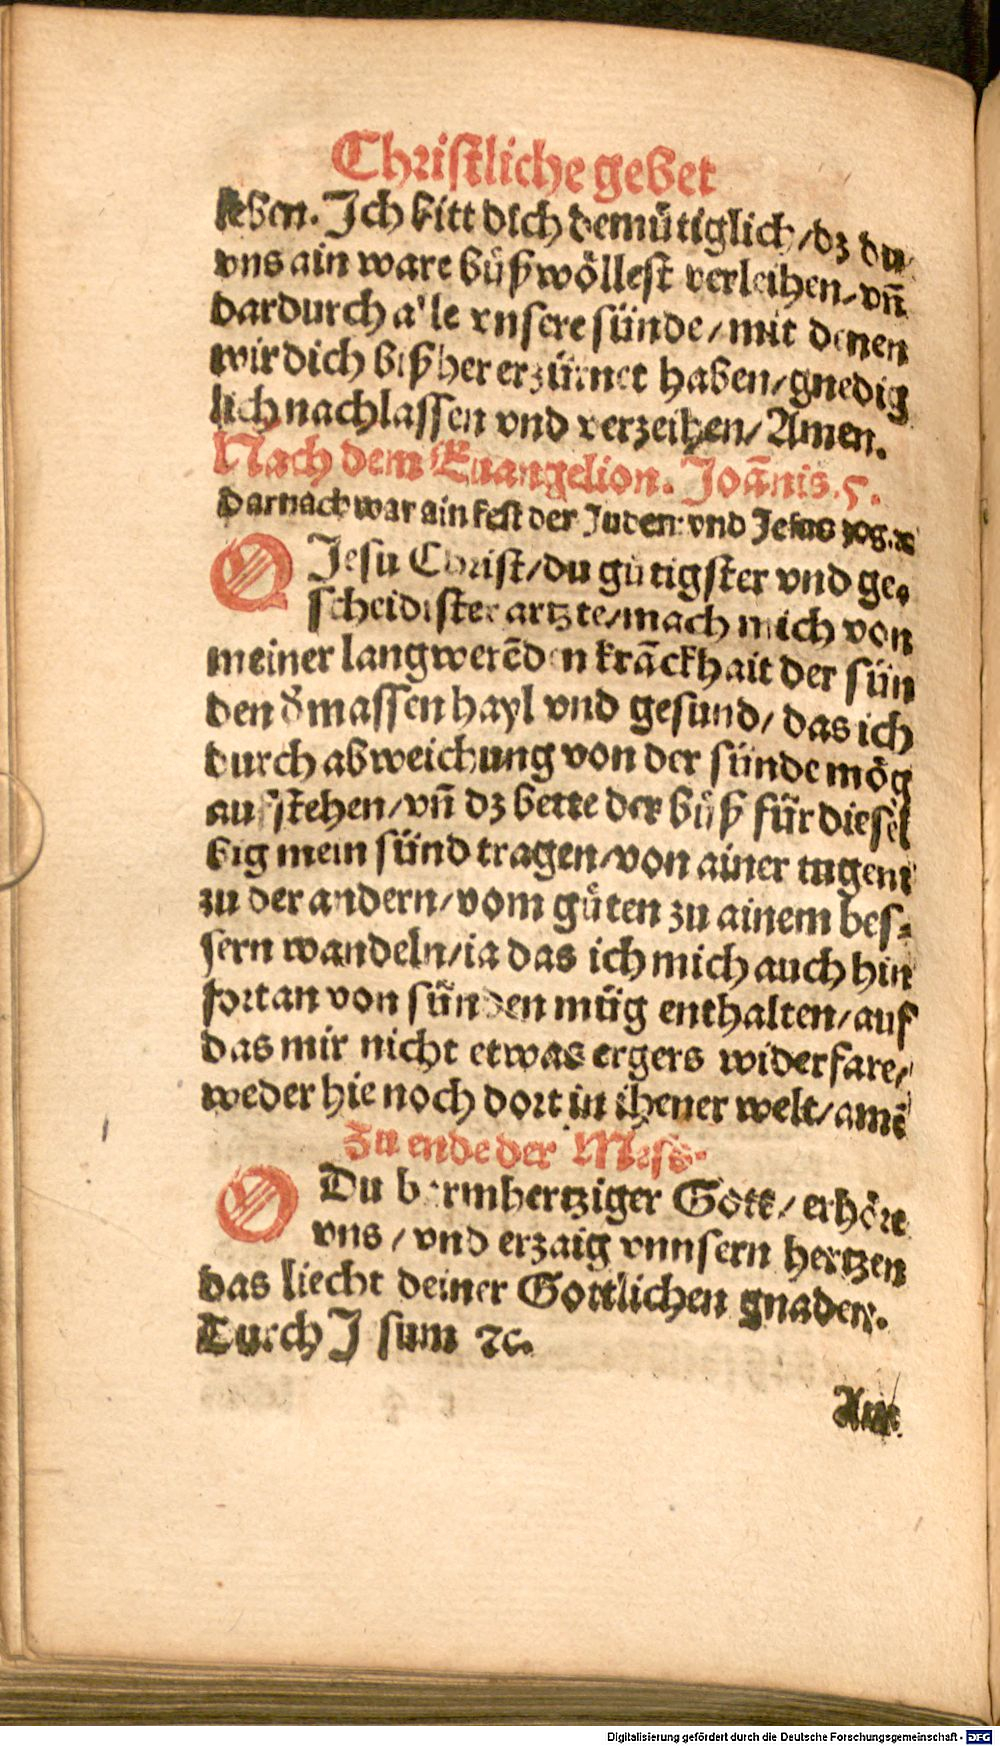 Christliche gebet
leben. Ich bitt dich demütiglich/dz du
vns ain ware bůß wöllest verleihen/vn̄
dardurch alle vnsere sünde/mit denen
wir dich bißher erzürnet haben/gnedig
lich nachlassen vnd verzeihen/Amen.
Nach dem Euangelion. Joān̄is.5.
Darnach war ain fest der Juden: vnd Jesus zog.ꝛc
O Jesu Christ/du gütigster vnd ge-
scheidister artzte/mach mich von
meiner langwerēden krāckhait der sün
den d̓massen hayl vnd gesund/das ich
durch abweichung von der sünde mög
aufstehen/vn̄ dz bette der bůß für diesel
big mein sünd tragen/von ainer tugent
zu der andern/vom gůten zu ainem bes-
sern wandeln/ia das ich mich auch hin
fortan von sünden müg enthalten/auf
das mir nicht etwas ergers widerfare/
weder hie noch dort in ihener welt/amē
Zu ende der Mess.
O Du barmhertziger Gott/erhöre
vns/vnd erzaig vnnsern hertzen
das liecht deiner Gottlichen gnaden.
Durch Jesum ꝛc.
Digitalisierung gefördert durch die Deutsche Forschungsgemeinschaft - DFG